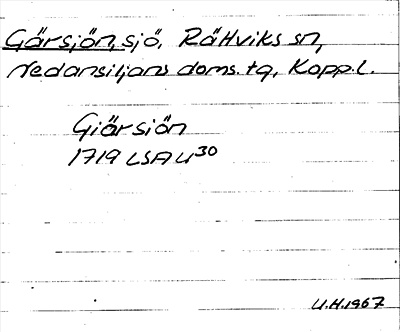 Gärsjön, sjö, Rättviks sn,
Nedansiljans doms. tg, Kopp. l.
Giärsiön
1719 LSA U30
U.H. 1967